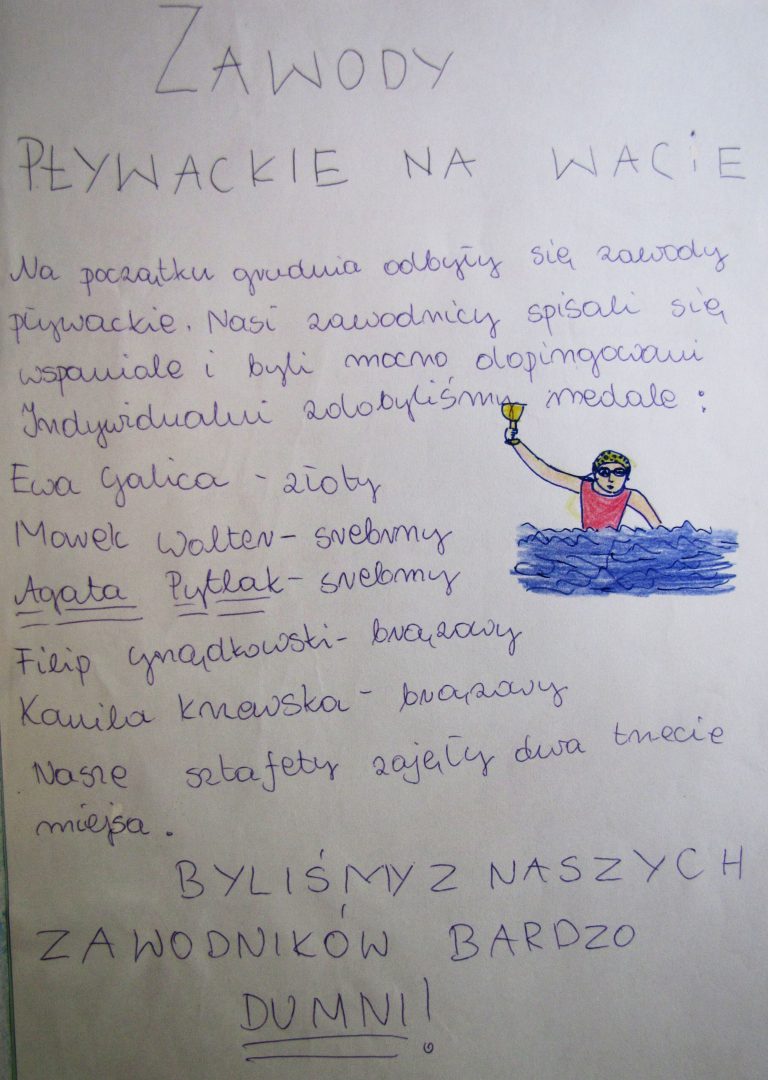 ZAWODY
PŁYWACKIE NA WACIE
Na początku grudnia odbyły się zawody
pływackie. Nasi zawodnicy spisali się
wspaniale i byli mocno dopingowani
Indywidualni zdobyliśmy medale:
Ewa Galica - złoty
Marek Walter - srebrny
Agata Pytlak - srebrny
Filip Grządkowski - brązowy
Kamila Krzewska - brązowy
Nasze sztafety zajęły dwa trzecie
miejsa.
BYLIŚMY Z NASZYCH
ZAWODNIKÓW BARDZO
DUMNI!